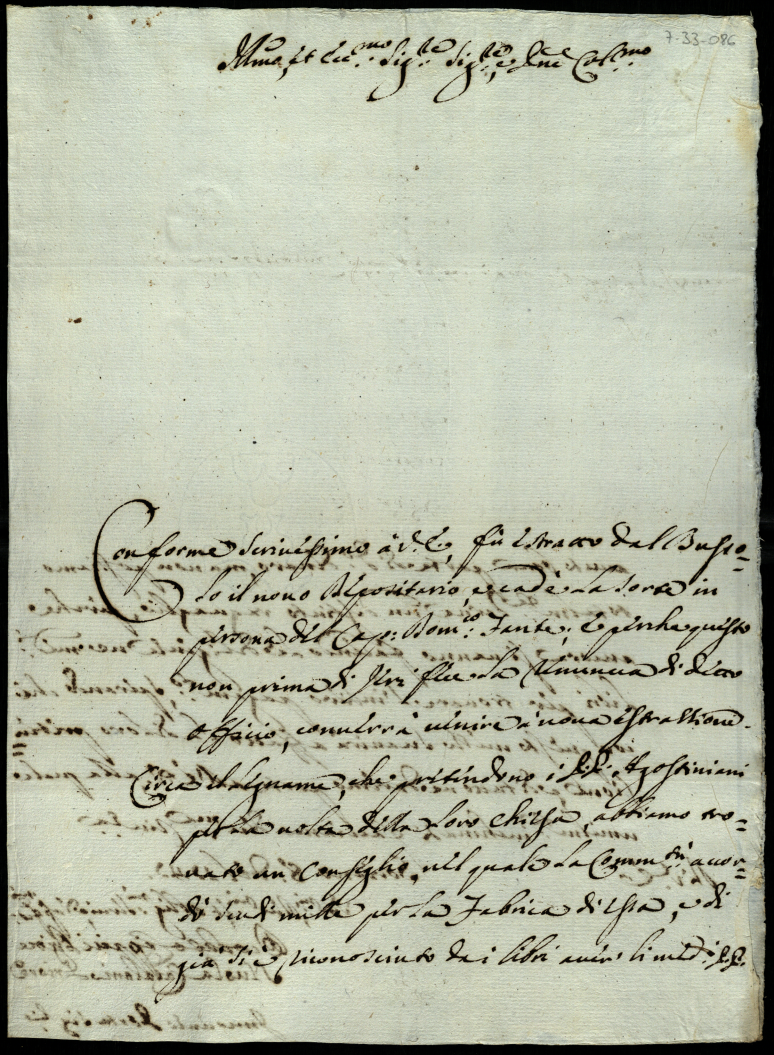 7-33-086
Illmo, et Eccmo Sigre Sigre, e Prone Colmo
Conforme scrivessimo à V. E., fù estratto dal Busso=
lo il novo Depositario, e cadè la sorte in
persona del Cap: Domco: Fante; e perche questo
non prima di jeri fece la renuncia di detto
officio, converrà venire à nova estrattione.
Circa il legname, che pretendono i PP: Agostiniani
per la volta della loro chiesa, abbiamo tro=
vato un Consiglio, nel quale la Commtà: accor=
dò scudi mille per la Fabrica di essa, e di
già si è riconosciuto da i libri aver li medi: PP.